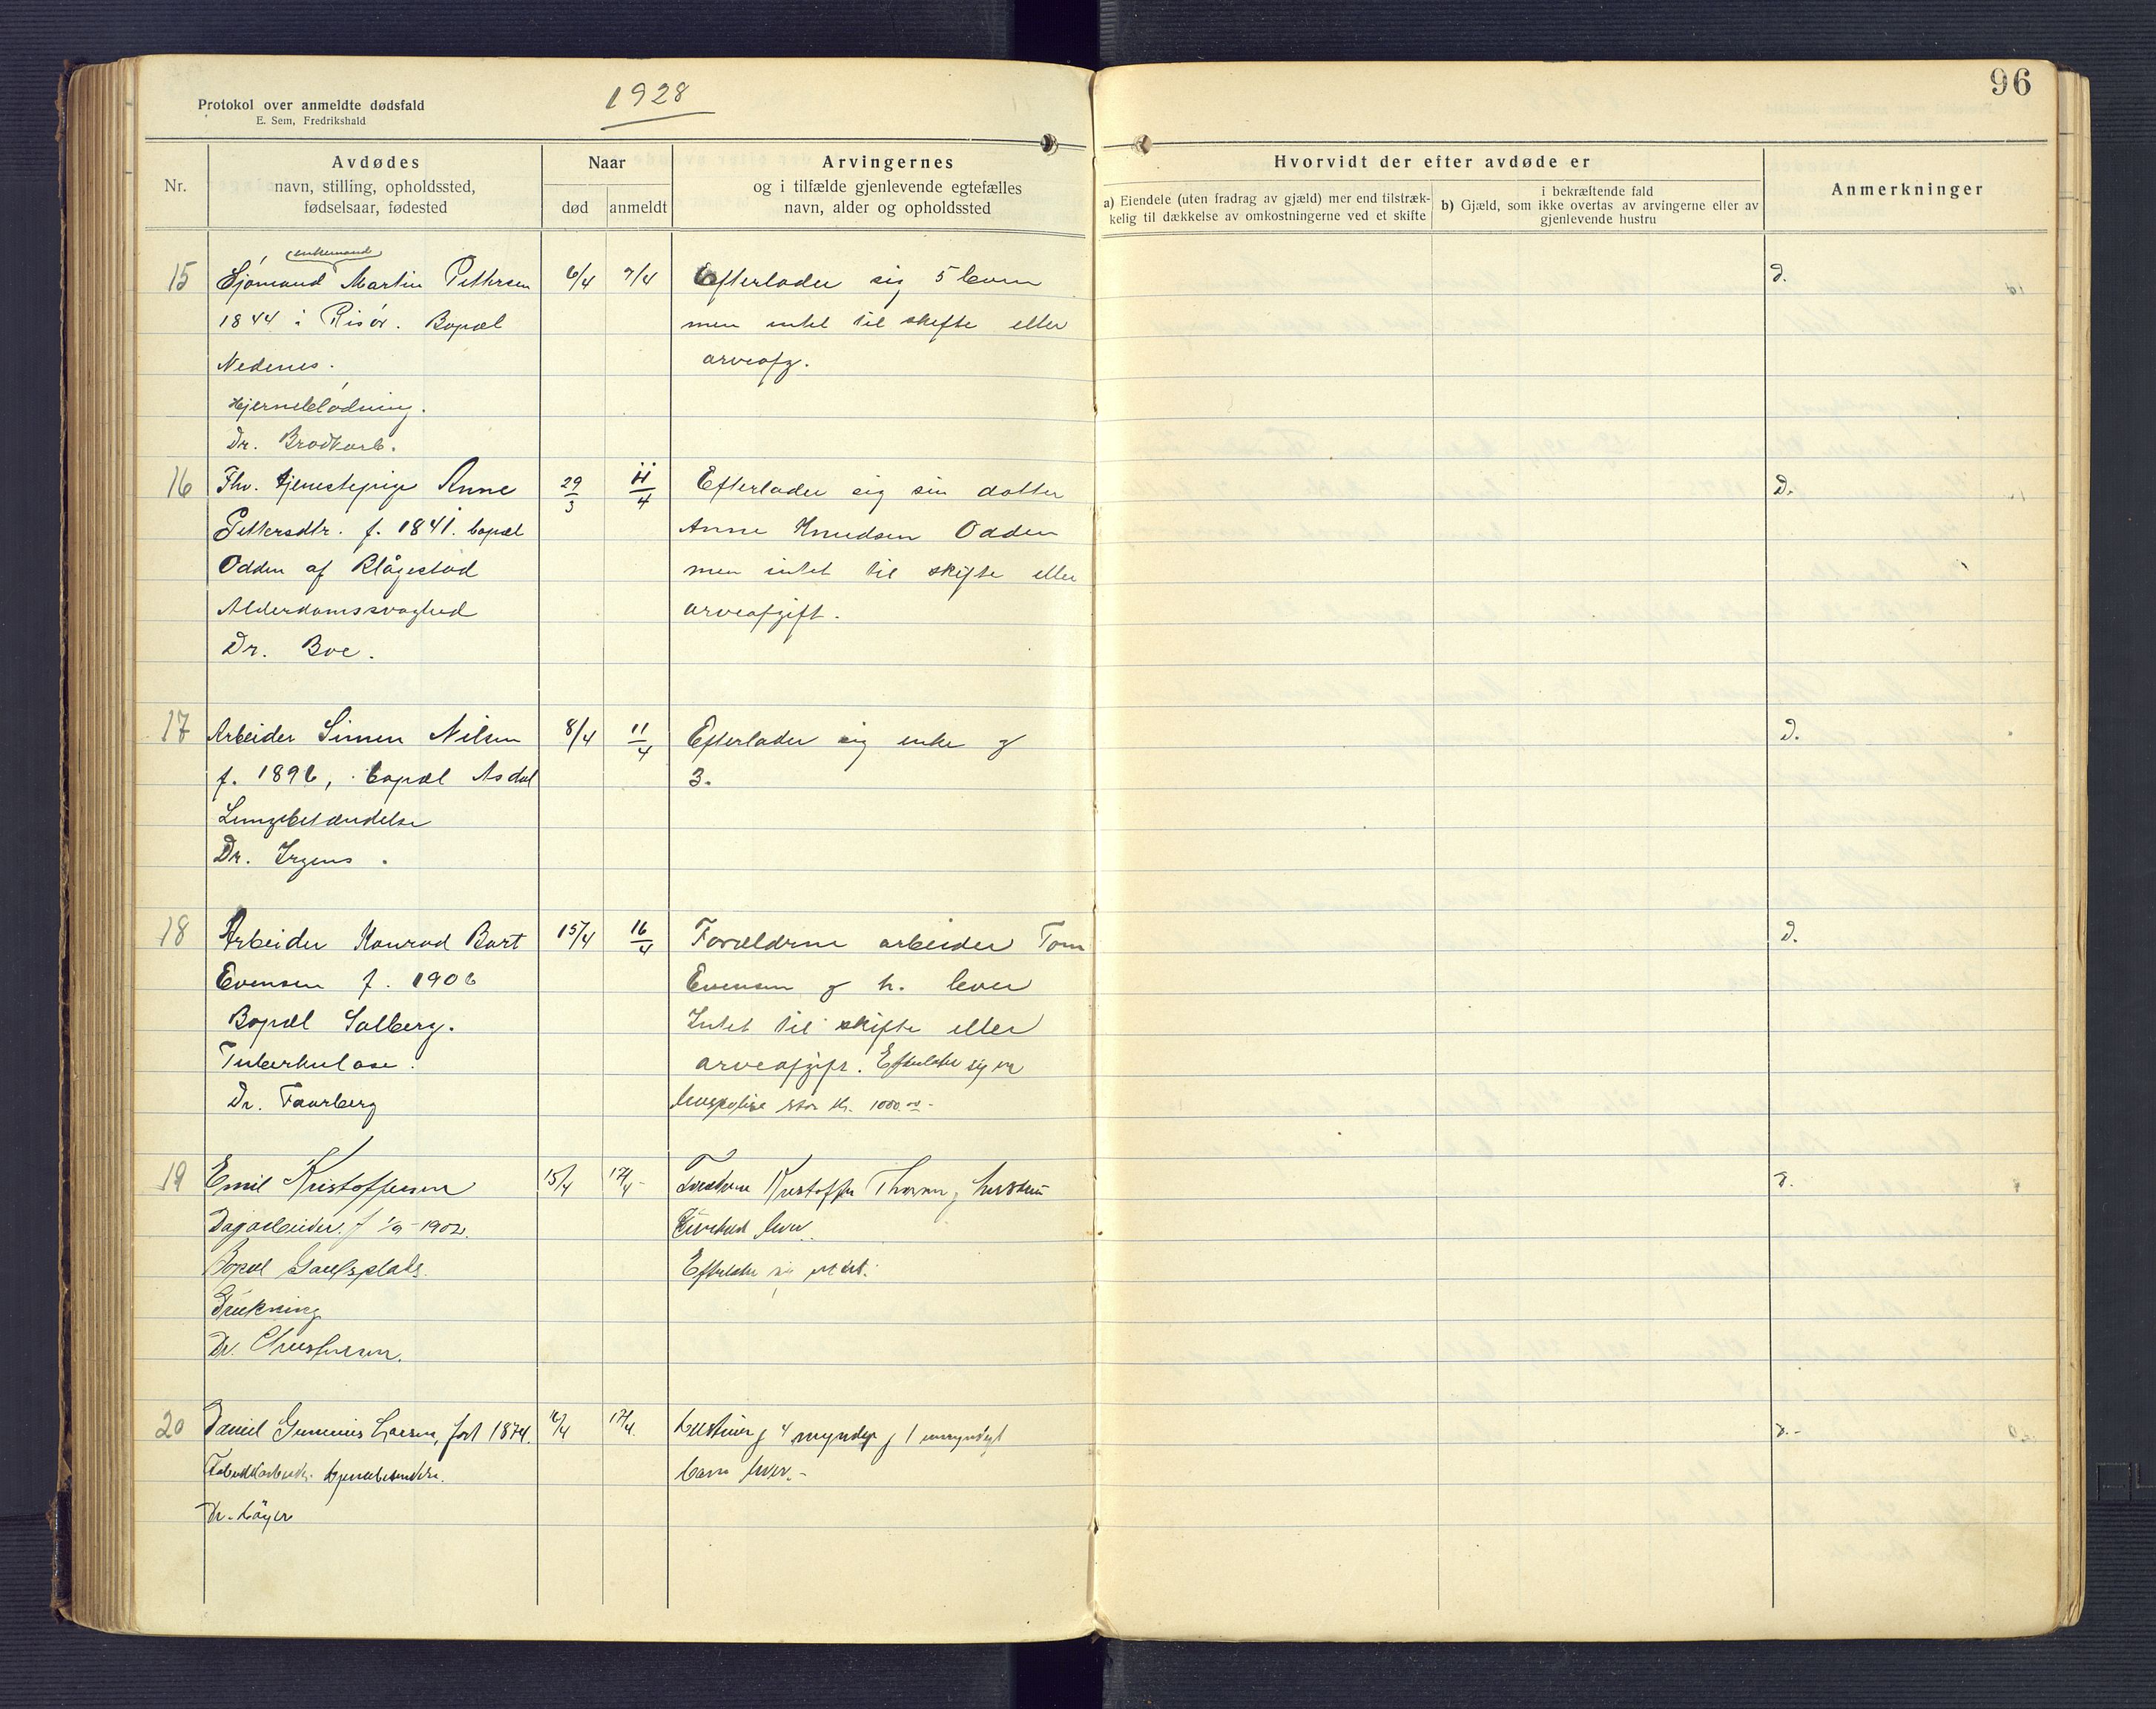 96
1928
Protokol over anmeldte dødsfald
E. Sem, Fredrikshald
Nr.
Avdødes
navn, stilling, opholdssted,
fødselsaar, fødested
Naar
død
anmeldt
Arvingernes
og i tilfælde gjenlevende egtefælles
navn, alder og opholdssted
Hvorvidt der efter avdøde er
a) Eiendele (uten fradrag av gjæld) mer end tilstræk-
kelig til dækkelse av omkostningerne ved et skifte
i bekræftende fald
b) Gjæld, som ikke overtas av arvingerne eller av
gjenlevende hustru
Anmerkninger
enkemand
15 Sjømand Martin Pettersen 6/4 7/4 Efterlader sig 5 barn D.
1844 i Risör. Bopæl men intet til skifte eller
Nedenes. arveafg.
Hjerneblödning.
Dr. Brodkorb.
16 Fhv. tjenestepige Anne 29/3 11/4 Efterlader sig sin datter D.
Pettersdtr. f. 1841. bopæl Anne Knudsen Odden
Odden af Blågestad men intet til skifte eller
Alderdomssvaghed arveafgift.
Dr. Boe.
17 Arbeider Simen Nilsen 8/4 11/4 Efterlader sig enke og D.
f. 1896, bopæl Asdal 3.
Lungebetændelse
Dr. Irgens.
18 Arbeider Konrad Bart 15/4 16/4 Forældrene arbeider Tom D.
Evensen f. 1906 Evensen og h. lever
Bopæl Solberg. Intet til skifte eller
Tuberkulose. arveafgift. Efterlater sig en
Dr. Faurberg livspolise stor kr. 1000.00-
19 Emil Kristoffersen 15/4 17/4- Kristoffer og hustru D.
Dagarbeider. f 1/9-1902. lever.
Bopæl Efterlater sig intet.
Drukning
Dr.
20 Daniel Gunnius Larsen, født 1874. 16/4 17/4. Hustruen og 4 myndige og 1 umyndigt D.-
barn lever.-
Dr. Høyer